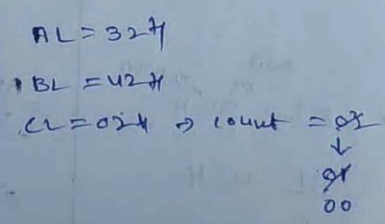 AL = 32H
BL = 42H
CL = 02H → count = 02
↓
01
00